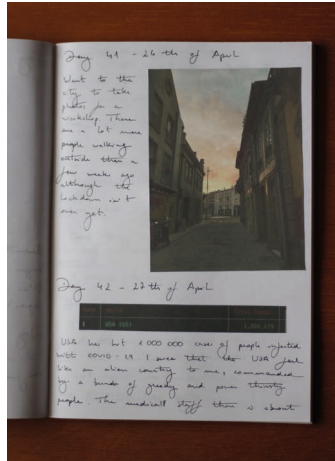 Day 41 - 26 th of April
Went to the
city to take
photos for a
workshop. There
are a lot more
people walking
outside than a
few weeks ago
although the
lockdown isn't
over yet.
Day 42 - 27 th of April
1 USA
USA has hit 1 000 000 cases of people infected
with COVID-19. I swear that the USA feel
like an alien country to me, commanded
by a bunch of greedy and power thirsty
people. The medical staff there is about